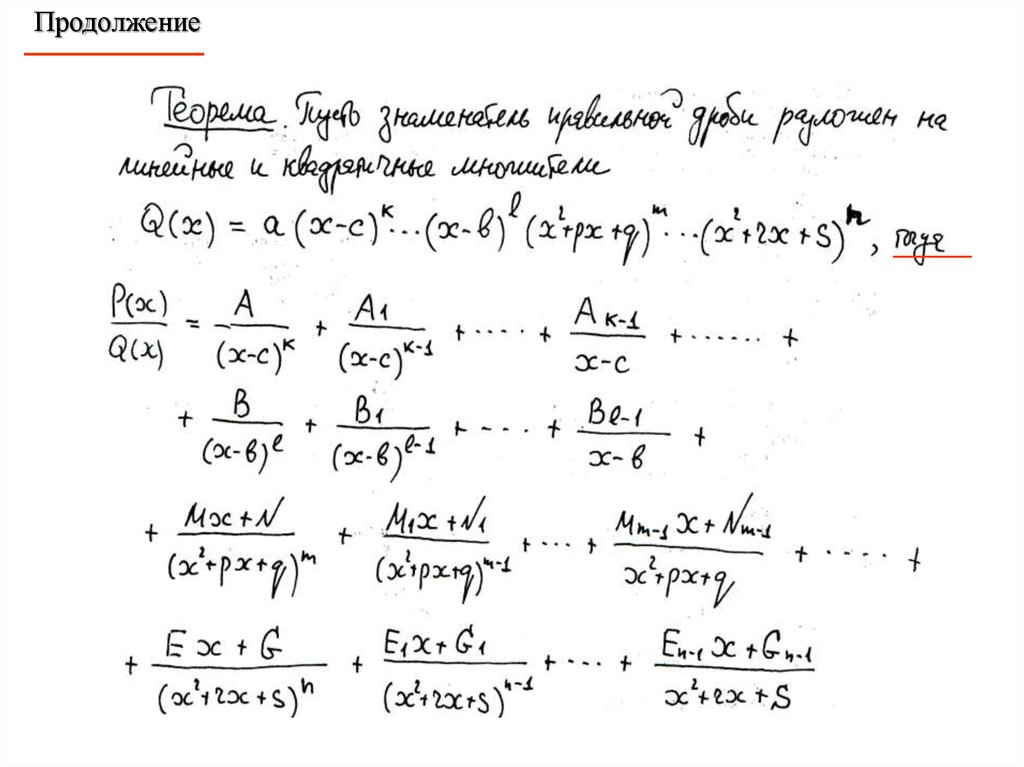 Продолжение
Теорема. Пусть знаменатель правильной дроби разложен на
линейные и квадратичные множители
Q(x) = a (x-c)^k ... (x-b)^l (x^2+px+q)^m ... (x^2+rx+s)^n, тогда
P(x)/Q(x) = A/(x-c)^k + A_1/(x-c)^{k-1} + .... + A_{k-1}/(x-c) + ...... +
+ B/(x-b)^l + B_1/(x-b)^{l-1} + .... + B_{l-1}/(x-b) +
+ (Mx+N)/(x^2+px+q)^m + (M_1x+N_1)/(x^2+px+q)^{m-1} + ... + (M_{m-1}x+N_{m-1})/(x^2+px+q) + .... +
+ (Ex+G)/(x^2+rx+s)^n + (E_1x+G_1)/(x^2+rx+s)^{n-1} + ... + (E_{n-1}x+G_{n-1})/(x^2+rx+s)